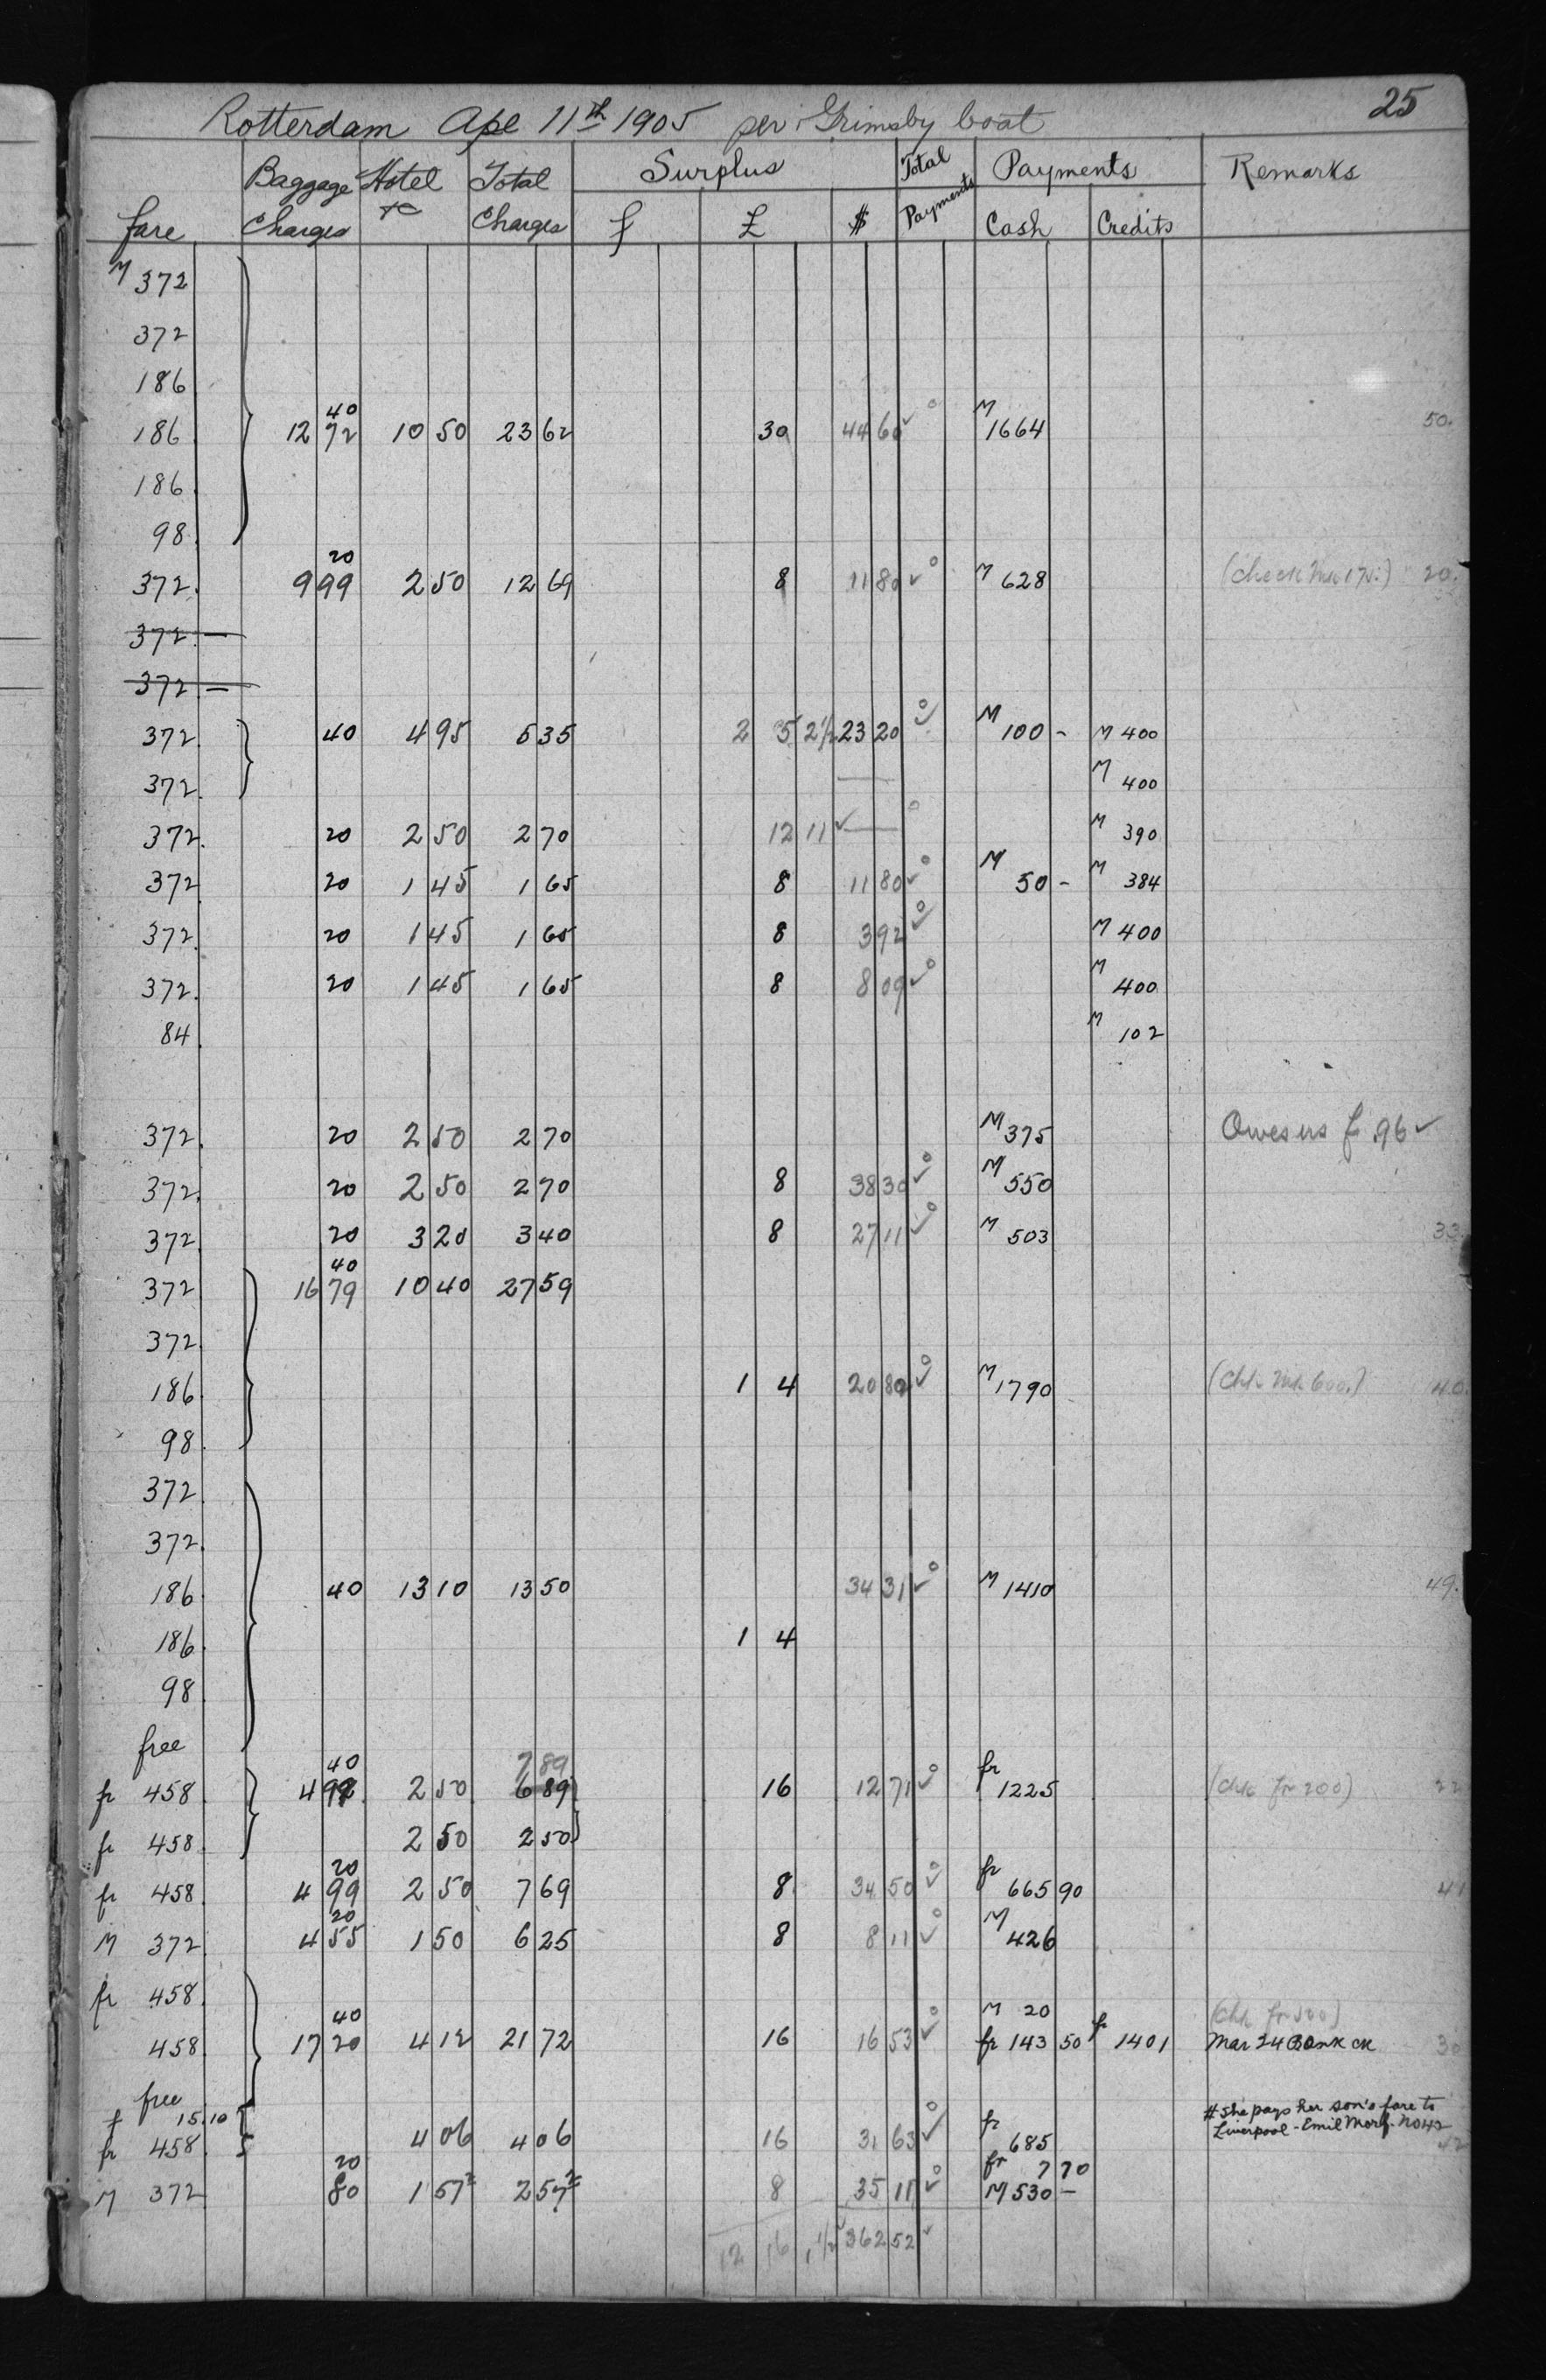 Rotterdam Ape 11th 1905 per Grimsby boat 25
fare Baggage Charges Hotel &c Total Charges Surplus Total Payments Payments Remarks
f £ $ Cash Credits
M 372
372
186
40
186 12 72 10 50 23 62 30 44 60 ✓ M 1664 50.
186
98
20
372. 9 99 2 50 12 69 8 11 80 ✓ M 628 20.
372. —
372. —
372 40 4 95 5 35 2 5 2½ 23 20 ✓ M 100 - M 400
372. M 400
372. 20 2 50 2 70 12 11 ✓ M 390
372 20 1 45 1 65 8 11 80 ✓ M 50 - M 384
372. 20 1 45 1 65 8 3 92 ✓ M 400
372. 20 1 45 1 65 8 8 09 ✓ M 400
84 M 102
372. 20 2 50 2 70 M 375 Owes us f .96 ✓
372. 20 2 50 2 70 8 38 30 ✓ M 550
372 20 3 20 3 40 8 27 11 ✓ M 503 33
40
372 16 79 10 40 27 59
372
186 1 4 20 80 ✓ M 1790 (Chk Mk 600.) 40.
98
372
372.
186 40 13 10 13 50 34 31 ✓ M 1410 49.
186 1 4
98
free
40 7 89
fr 458 4 99 2 50 6 89 16 12 71 ✓ fr 1225 (Chk fr 200) 22
fr 458. 2 50 2 50
20
fr 458 4 99 2 50 7 69 8 34 50 ✓ fr 665 90 41
20
M 372 4 55 1 50 6 25 8 8 11 ✓ M 426
fr 458.
40 M 20 (Chk fr 500)
458 17 20 4 12 21 72 16 16 53 ✓ fr 143 50 fr 1401 Mar 24 Bank ck 30
free
f 15.10 # She pays her son's fare to
fr 458. 4 06 4 06 16 31 63 ✓ fr 685 Liverpool - Emil No 42 42
20 fr 7 70
M 372 80 1 57² 2 57² 8 35 11 ✓ M 530 —
12 16 1½ 362 52 ✓